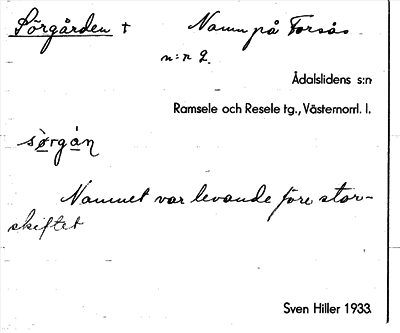 Sörgården † Namn på Forsås
n:r 2.
Ådalslidens s:n
Ramsele och Resele tg., Västernorrl. l.
sö̀rgán
Namnet var levande före stor-
skiftet
Sven Hiller 1933.